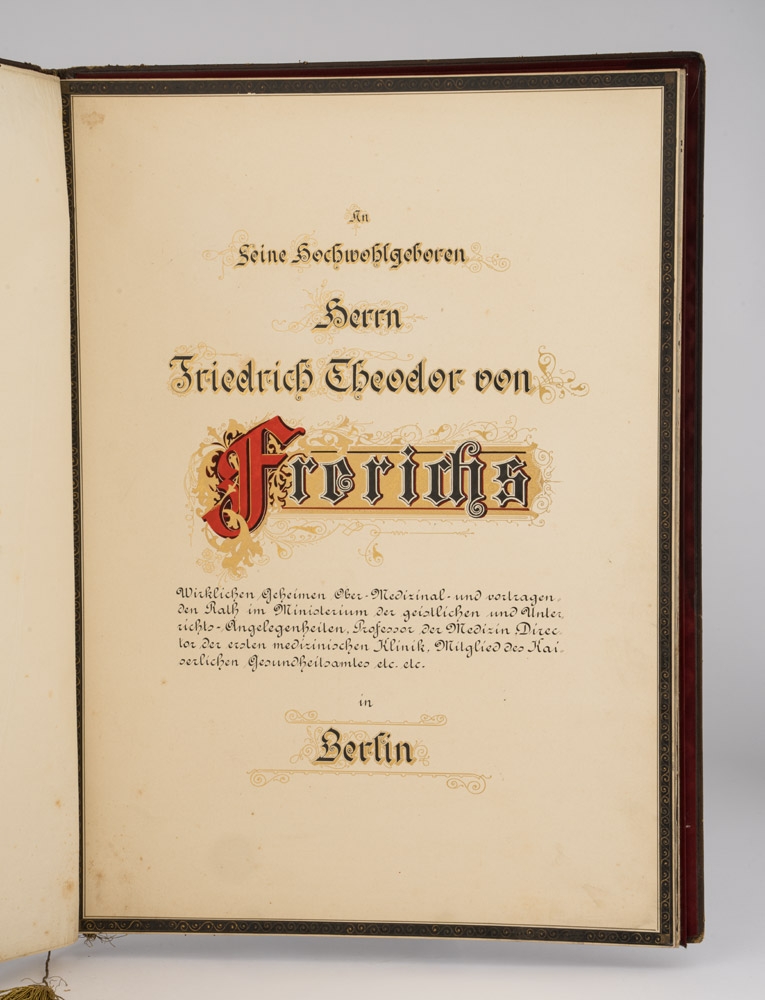 An
Seine Hochwohlgeboren
Herrn
Friedrich Theodor von
Frerichs
Wirklichen Geheimen Ober-Medizinal- und vortragen-
den Rath im Ministerium der geistlichen und Unter-
richts-Angelegenheiten, Professor der Medizin Direc-
tor der ersten medizinischen Klinik, Mitglied des Kai-
serlichen Gesundheitsamtes etc. etc.
in
Berlin